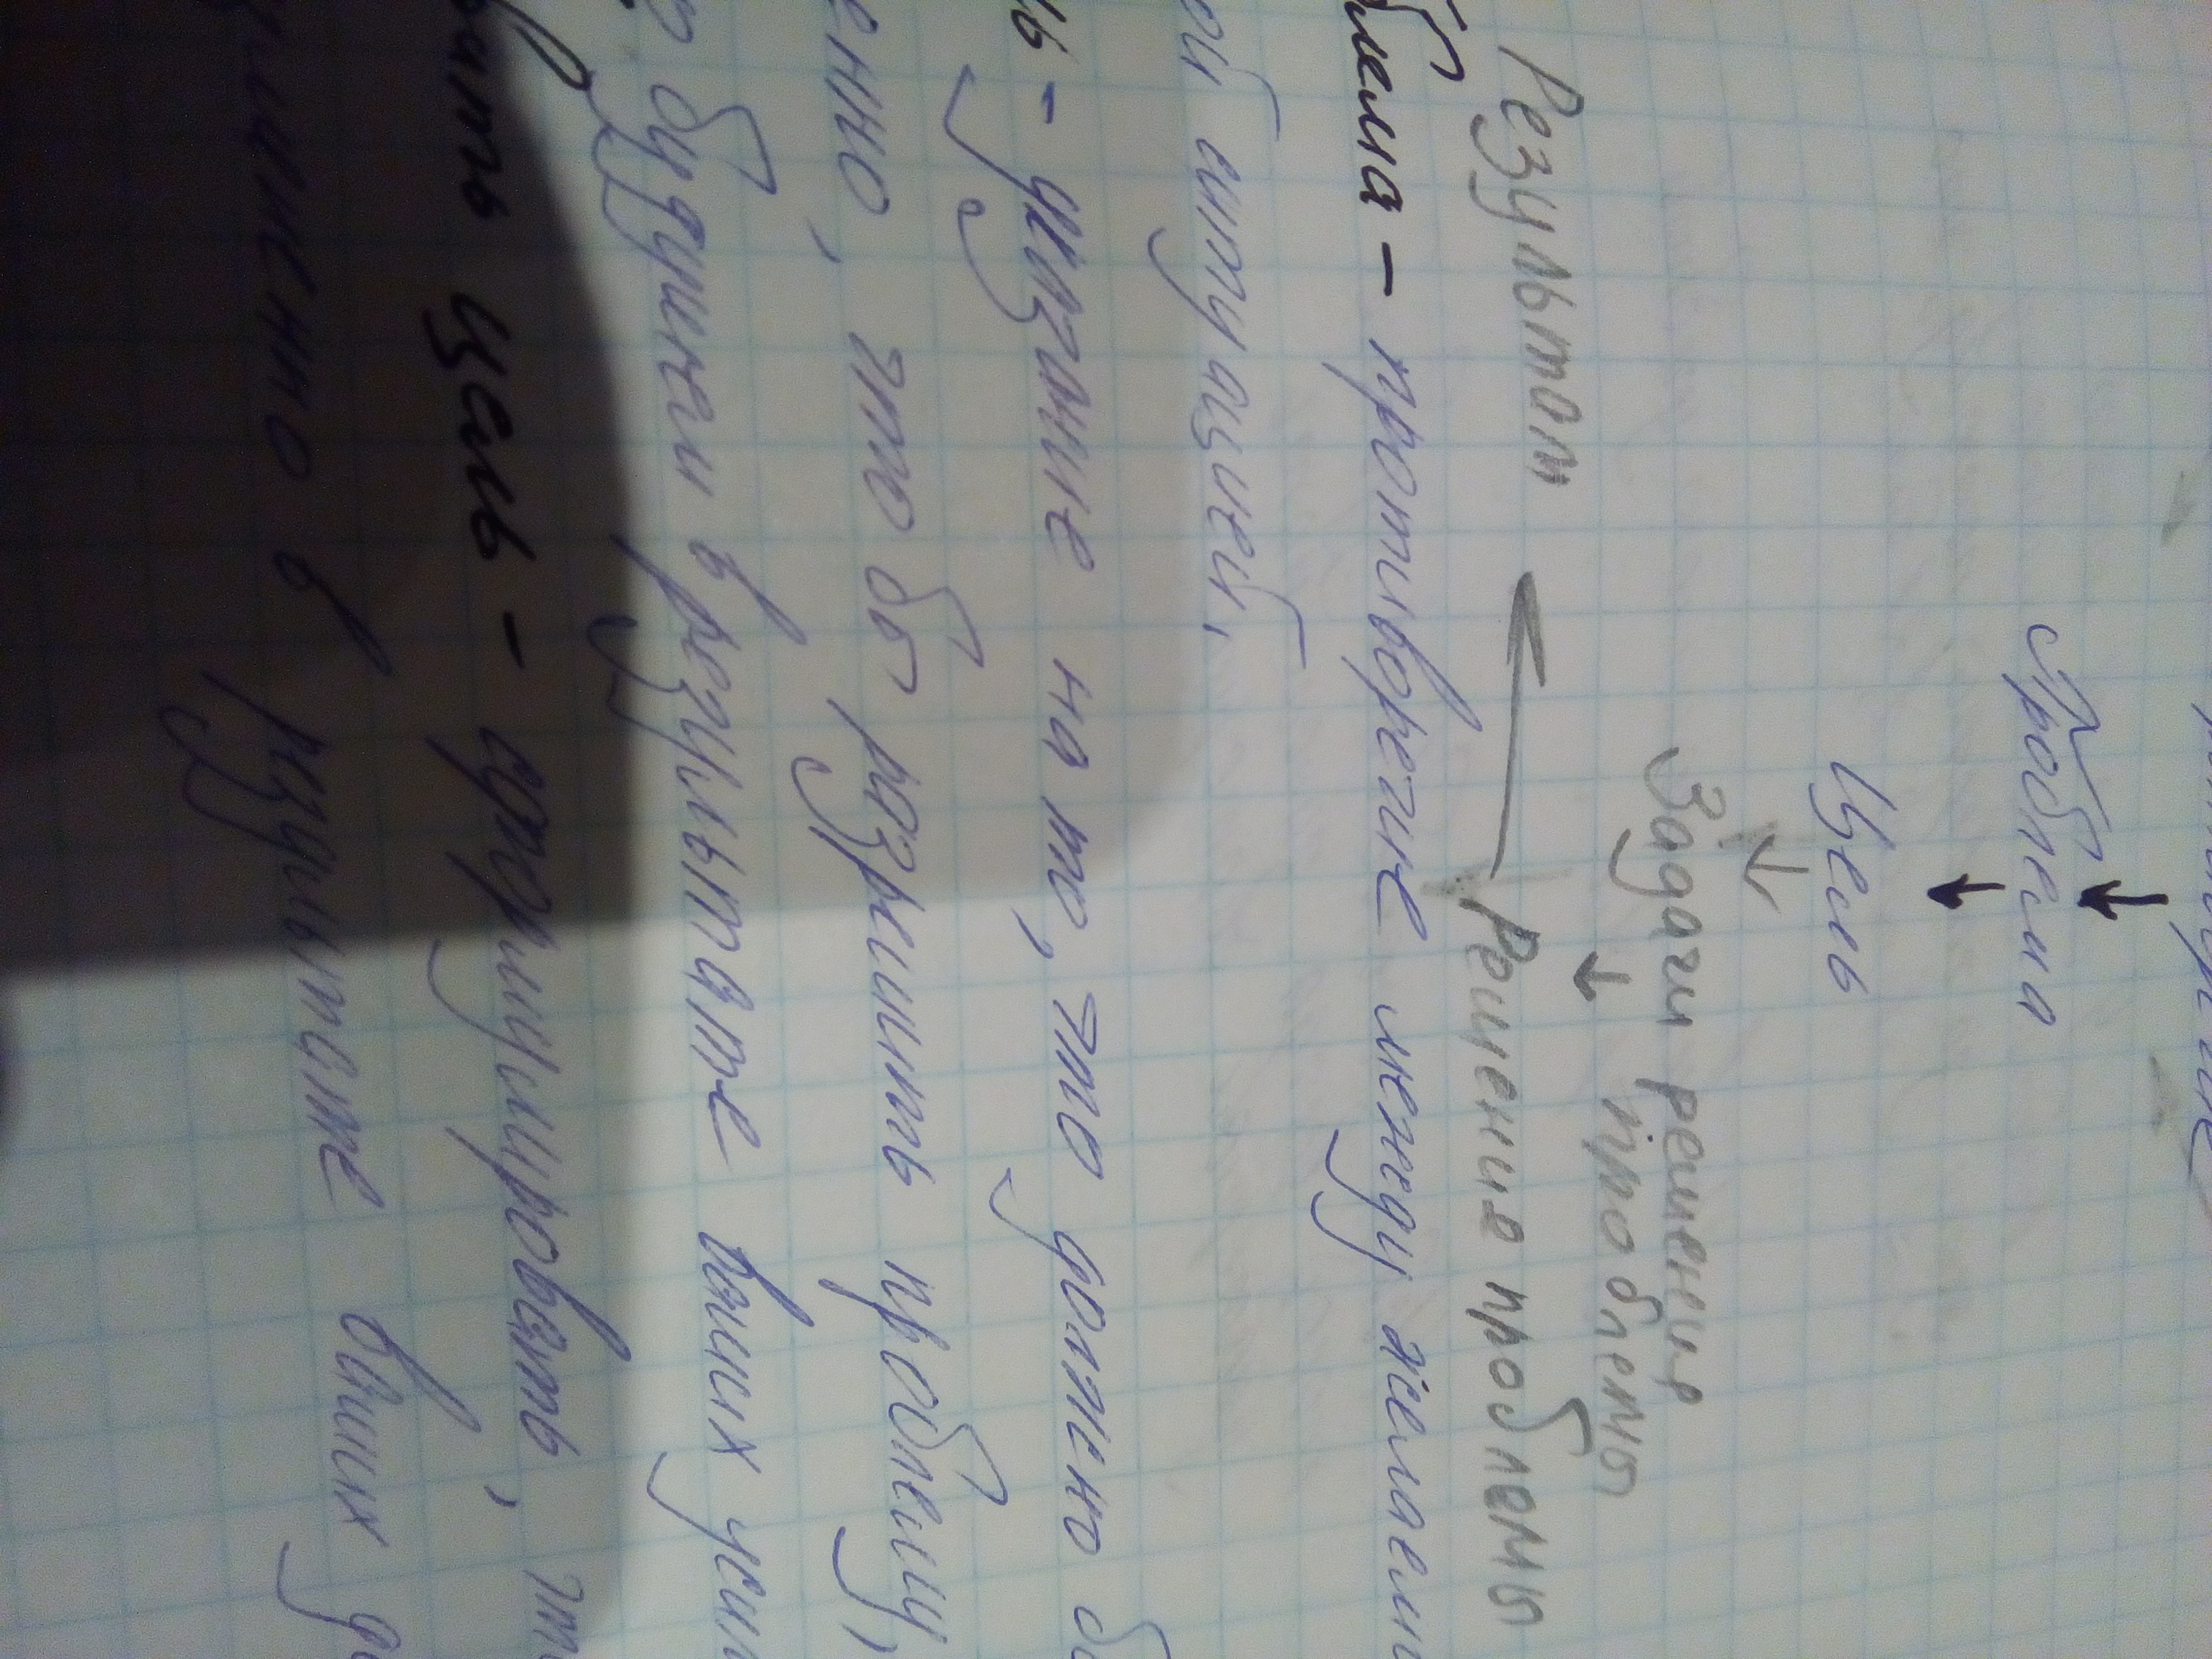 Проблема
Цель
Задачи решения
проблемы
Результат Решение проблемы
блема – противоречие между желаем
ой ситуацией,
ль – указание на то, что должно б
ено, что бы разрешить проблему,
о будущем в результате ваших усил
вать цель – формулировать, эт
менно в результате ваших д